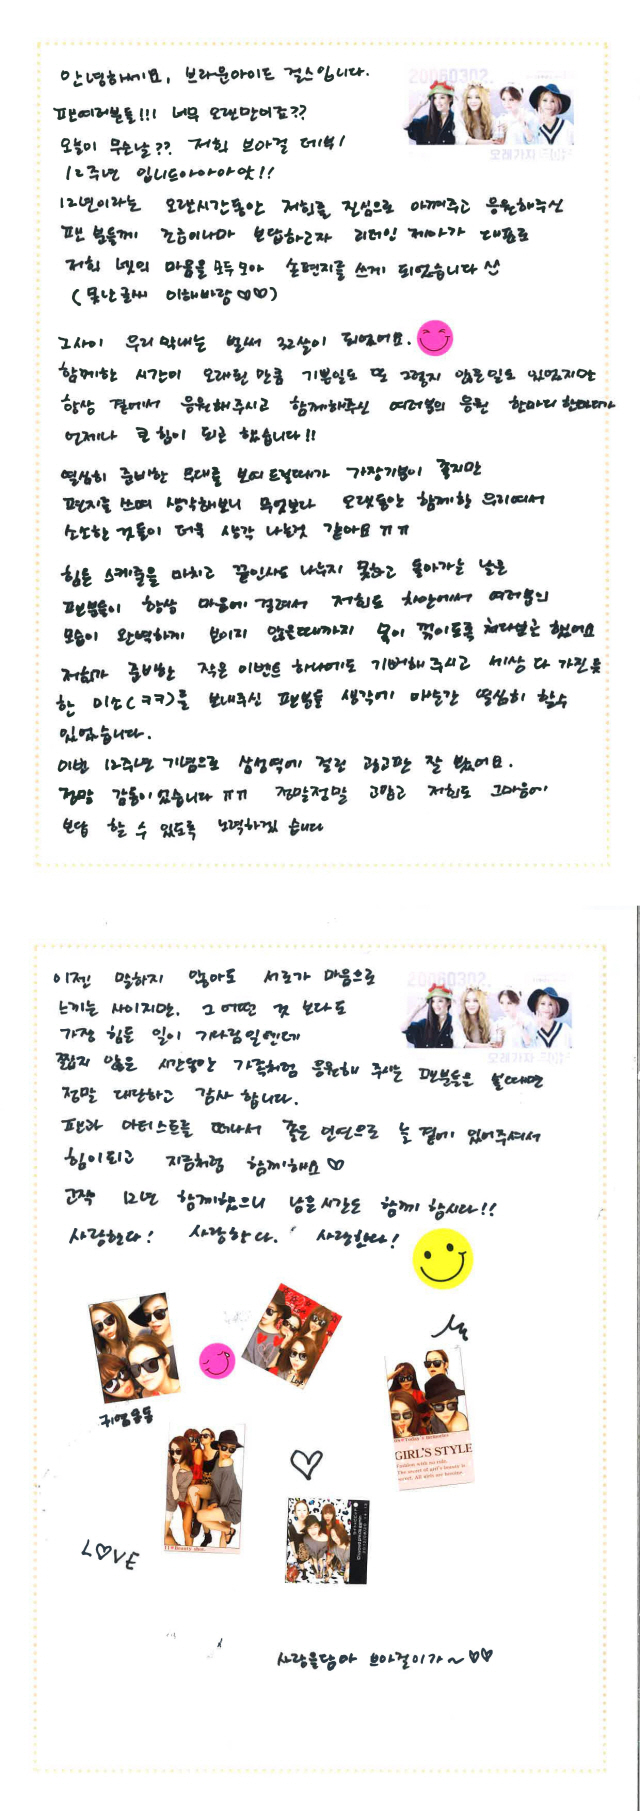 안녕하세요, 브라운아이드 걸스입니다.
20060302.
오래가자
팬여러분들!!! 너무 오랜만이죠??
오늘이 무슨날?? 저희 브아걸 데뷔!
12주년 입니드아아아앗!!
12년이라는 오랜시간동안 저희를 진심으로 아껴주고 응원해주신
팬 분들께 조금이나마 보답하고자 리더인 제아가 대표로
저희 넷의 마음을 모두모아 손편지를 쓰게 되었습니다
(못난글씨 이해바랑♡♡)
그사이 우리막내는 벌써 32살이 되었어요.
함께한 시간이 오래된 만큼 기쁜일도 또 그렇지 않은일도 있었지만
항상 곁에서 응원해주시고 함께해주신 여러분의 응원 한마디한마디가
언제나 큰힘이 되곤 했습니다!!
열심히 준비한 무대를 보여드릴때가 가장기쁨이 좋지만
편지를 쓰며 생각해보니 무엇보다 오랫동안 함께한 우리여서
소소한 것들이 더욱 생각 나는것 같아요 ㅠㅠ
힘든 스케줄을 마치고 끝인사도 나누지 못하고 돌아가는 날은
팬분들이 항상 마음에 걸려서 저희도 차안에서 여러분의
모습이 완벽하게 보이지 않을때까지 목이 꺾이도록 쳐다보곤 했어요
저희가 준비한 작은 이벤트 하나에도 기뻐해 주시고 세상 다 가진듯
한 미소(ㅋㅋ)를 보내주신 팬분들 생각에 매순간 열심히 할수
있었습니다.
이번 12주년 기념으로 삼성역에 걸린 광고판 잘 봤어요.
정말 감동이었습니다 ㅠㅠ 정말정말 고맙고 저희도 그마음에
보답 할 수 있도록 노력하겠습니다
이젠 말하지 않아도 서로가 마음으로
20060302.
오래가자
느끼는 사이지만, 그 어떤 것 보다도
가장 힘든 일이 기다림일텐데
짧지 않은 시간동안 가족처럼 응원해 주시는 팬분들을 볼때면
정말 대단하고 감사 합니다.
팬과 아티스트를 떠나서 좋은 인연으로 늘 곁에 있어주셔서
힘이되고 지금처럼 함께해요♡
고작 12년 함께했으니 남은시간도 함께 합시다!!
사랑한다! 사랑한다. 사랑한다!
귀염뭉둥
Today's memories
GIRL'S STYLE
Fashion with no rule.
The secret of girl's beauty is
secret. All girls are heroine
LOVE
사랑을담아 브아걸이가~♡♡